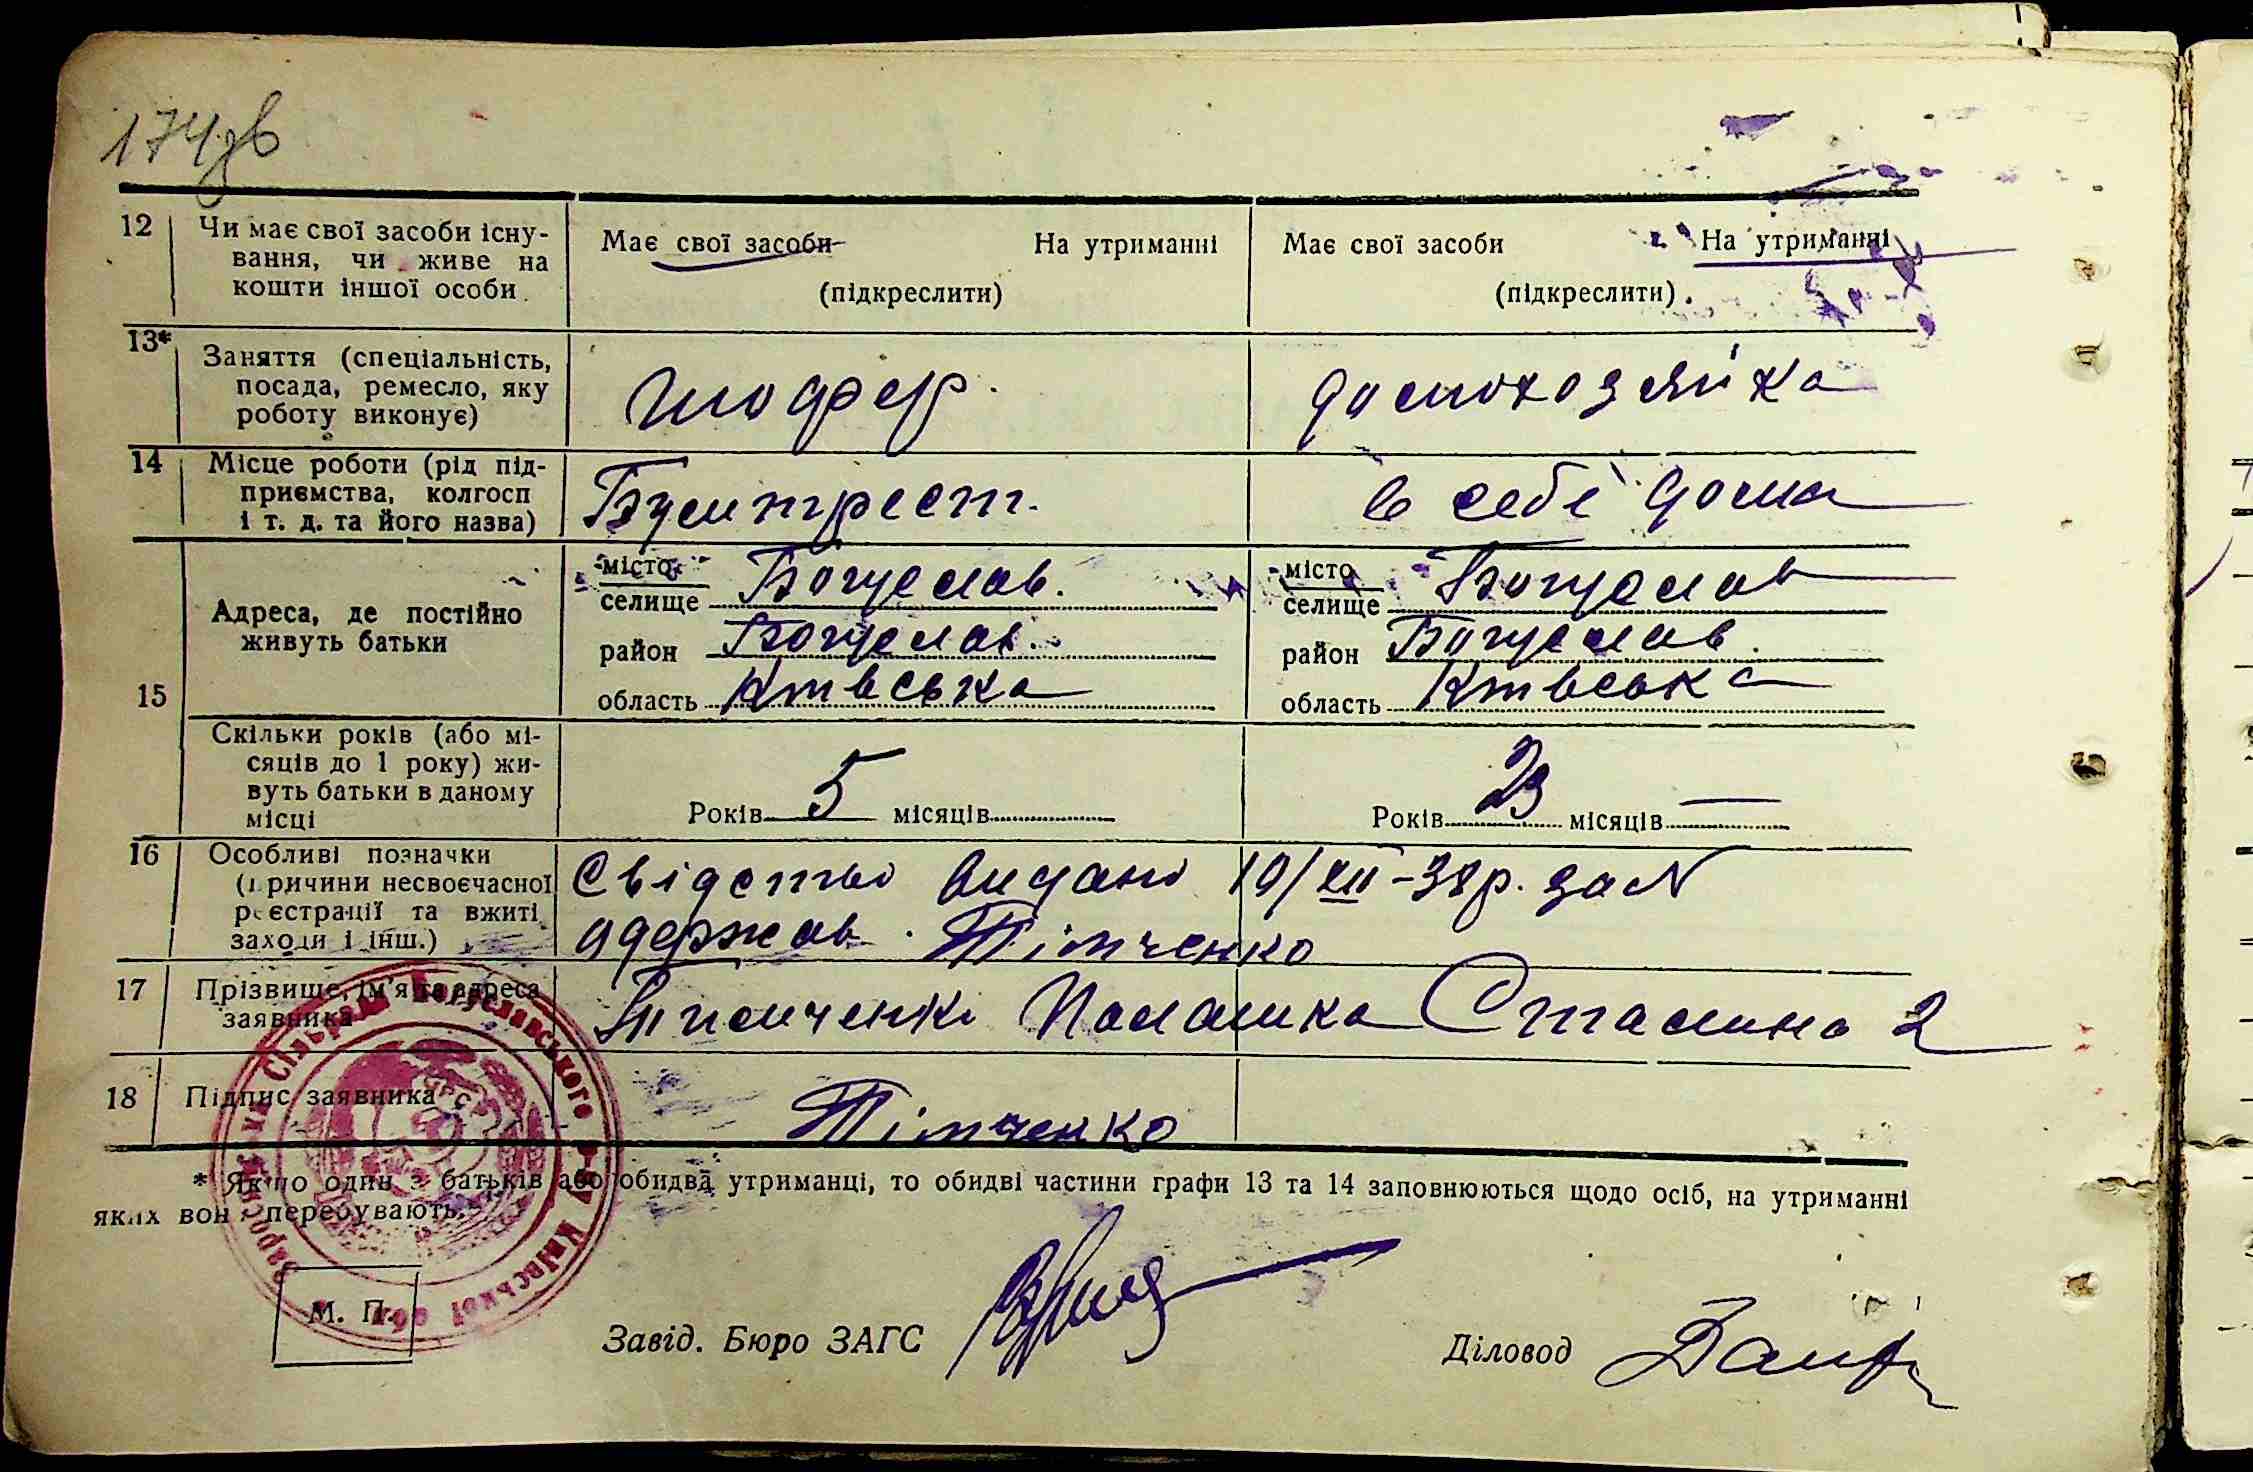 174зв
12 Чи має свої засоби існу-
вання, чи живе на
кошти іншої особи
Має свої засоби На утриманні
(підкреслити)
Має свої засоби На утриманні
(підкреслити)
13* Заняття (спеціальність,
посада, ремесло, яку
роботу виконує)
шофер
домохозяйка
14 Місце роботи (рід під-
приємства, колгосп
і т. д. та його назва)
Бумтрест.
в себе дома
15 Адреса, де постійно
живуть батьки
місто
селище Богуслав.
район Богуслав.
область Київська
місто
селище Богуслав
район Богуслав.
область Київська
Скільки років (або мі-
сяців до 1 року) жи-
вуть батьки в даному
місці
Років 5 місяців
Років 23 місяців —
16 Особливі позначки
(причини несвоєчасної
реєстрації та вжиті
заходи і інш.)
Свідотво видано 19/XII-38р. за N
одержав. Тімченко
17 Прізвище, ім'я та адреса
заявника
Тимченко Палашка Сталина 2
18 Підпис заявника
Тімченко
* Якщо один з батьків або обидва утриманці, то обидві частини графи 13 та 14 заповнюються щодо осіб, на утриманні
яких вони перебувають.
М. П.
Завід. Бюро ЗАГС
Діловод
Сільради Богуславського р-ну Київської обл.